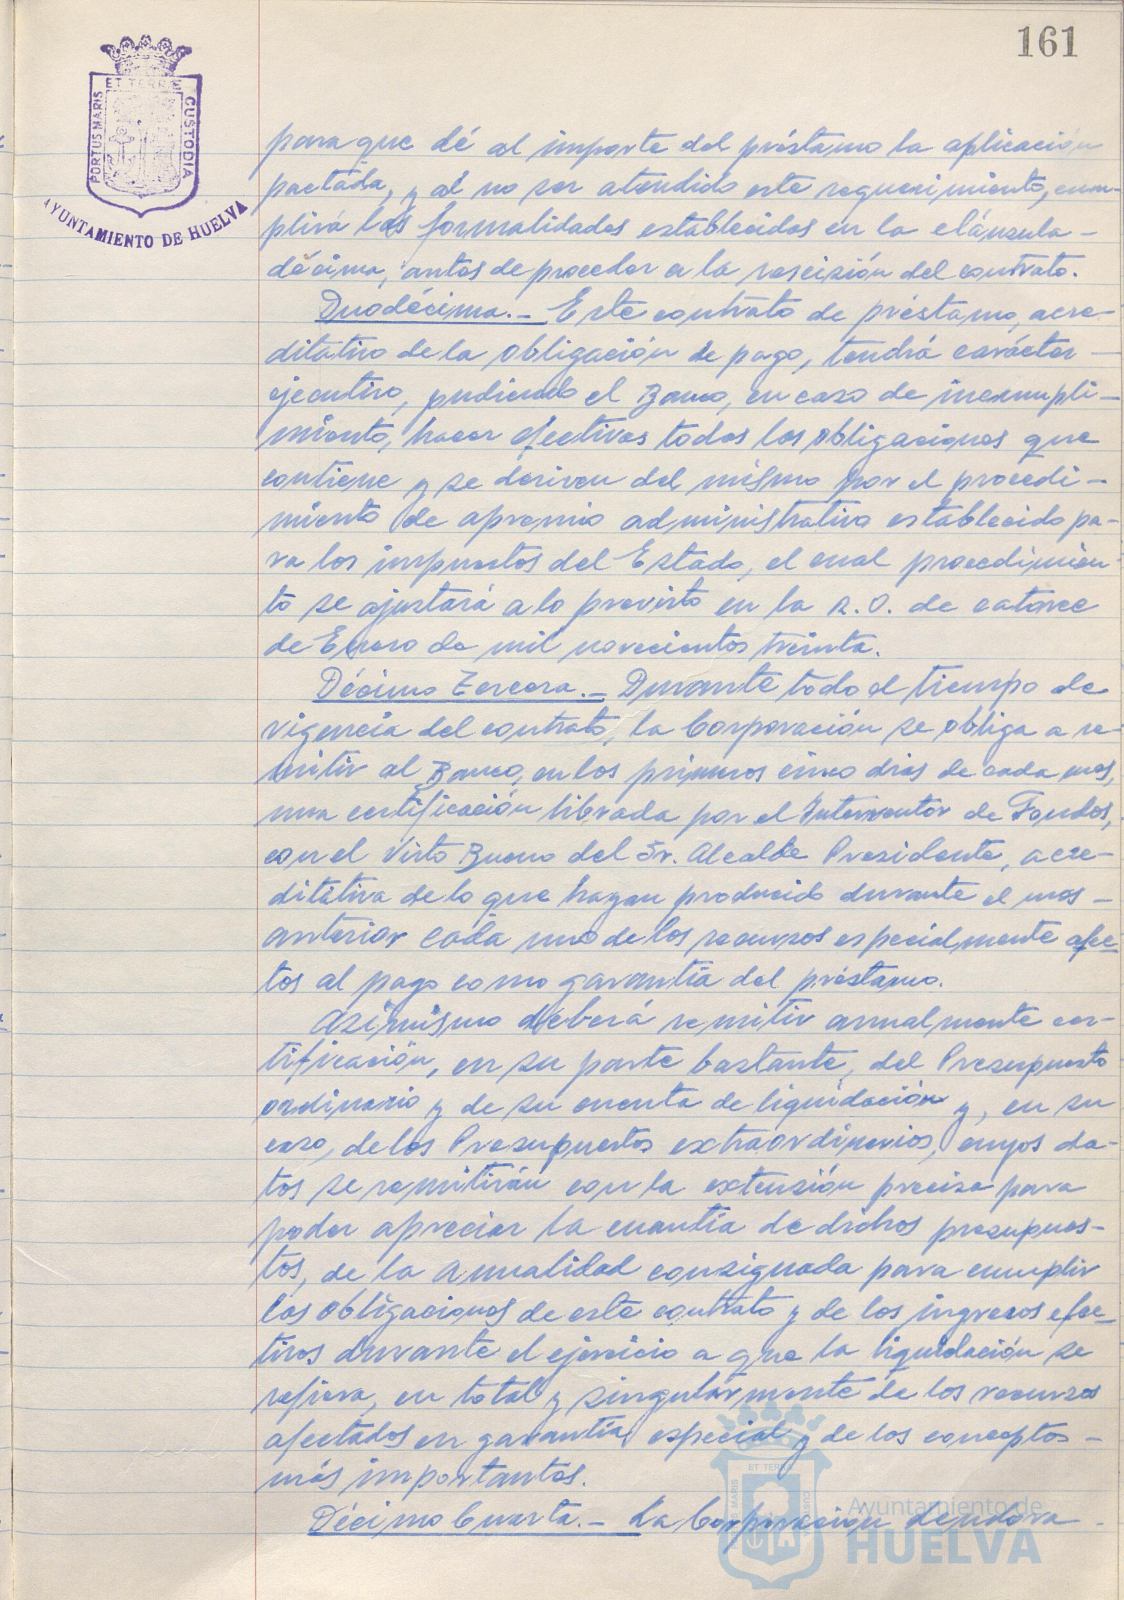 161
PORTUS MARIS ET TERRE CUSTODIA
AYUNTAMIENTO DE HUELVA
para que dé al importe del préstamo la aplicación
pactada, y al no ser atendido este requerimiento, cum-
plirá las formalidades establecidas en la cláusula -
décima, antes de proceder a la rescisión del contrato.
Duodécima.- Este contrato de préstamo, acre-
ditativo de la obligación de pago, tendrá carácter -
ejecutivo, pudiendo el Banco, en caso de incumpli-
miento, hacer efectivas todas las obligaciones que
contiene y se deriven del mismo por el procedi-
miento de apremio administrativo establecido pa-
ra los impuestos del Estado, el cual procedimien-
to se ajustará a lo previsto en la R.O. de catorce
de Enero de mil novecientos treinta.
Décimo Tercera.- Durante todo el tiempo de
vigencia del contrato, la Corporación se obliga a re-
mitir al Banco, en los primeros cinco dias de cada mes,
una certificación librada por el Interventor de Fondos,
con el Visto Bueno del Sr. Alcalde Presidente, acre-
ditativa de lo que hayan producido durante el mes -
anterior cada uno de los recursos especialmente afec-
tos al pago como garantía del préstamo.
Asimismo deberá remitir anualmente cer-
tificación, en su parte bastante, del Presupuesto
ordinario y de su cuenta de liquidación y, en su
caso, de los Presupuestos extraordinarios, cuyos da-
tos se remitirán con la extensión precisa para
poder apreciar la cuantía de dichos presupues-
tos, de la anualidad consignada para cumplir
las obligaciones de este contrato y de los ingresos efec-
tivos durante el ejercicio a que la liquidación se
refiera, en total y singularmente de los recursos
afectados en garantía especial y de los conceptos -
más importantes.
Décimo Cuarta.- La Corporación deudora -
Ayuntamiento de
HUELVA